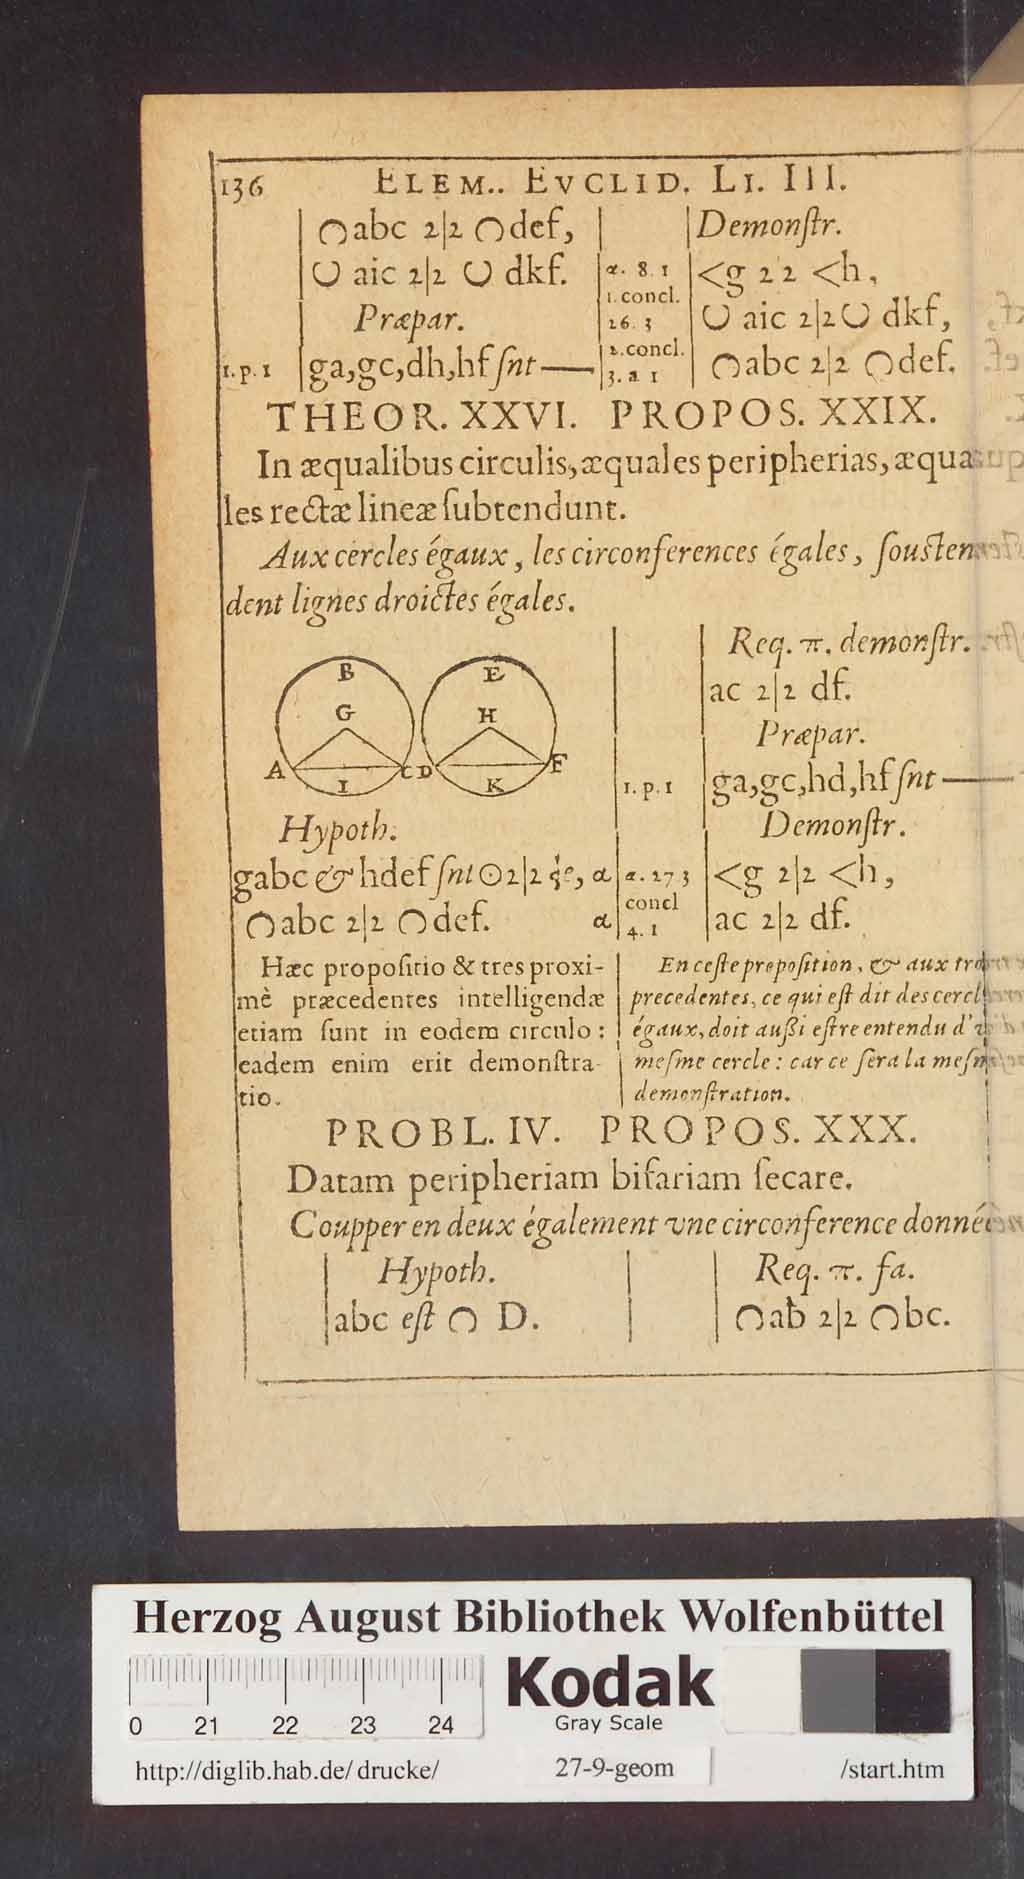 136 ELEM.. EVCLID. LI. III.
◠abc 2|2 ◠def,
◡ aic 2|2 ◡ dkf.
Præpar.
1. p. 1 ga,gc,dh,hf ſnt —
Demonſtr.
α. 8. 1 <g 2 2 <h,
1. concl.
26. 3 ◡ aic 2|2 ◡ dkf,
2. concl.
3. a 1 ◠abc 2|2 ◠def.
THEOR. XXVI. PROPOS. XXIX.
In æqualibus circulis, æquales peripherias, æqua
les rectæ lineæ ſubtendunt.
Aux cercles égaux, les circonferences égales, ſouſten
dent lignes droictes égales.
B E
G H
A C D F
I K
Hypoth.
gabc & hdef ſnt ⊙ 2|2 α
◠abc 2|2 ◠def. α
Req. π. demonſtr.
ac 2|2 df.
Præpar.
1. p. 1 ga,gc,hd,hf ſnt —
Demonſtr.
α. 27 3 <g 2|2 <h,
concl
4. 1 ac 2|2 df.
Hæc propoſitio & tres proxi-
mè præcedentes intelligendæ
etiam ſunt in eodem circulo:
eadem enim erit demonſtra-
tio.
En ceſte propoſition, & aux
precedentes, ce qui eſt dit des
égaux, doit außi eſtre entendu
meſme cercle: car ce ſera la
demonſtration.
PROBL. IV. PROPOS. XXX.
Datam peripheriam bifariam ſecare.
Coupper en deux également vne circonference
Hypoth.
abc eſt ◠ D.
Req. π. fa.
◠ab 2|2 ◠bc.
Herzog August Bibliothek Wolfenbüttel
0 21 22 23 24
Kodak
Gray Scale
http://diglib.hab.de/drucke/ 27-9-geom /start.htm